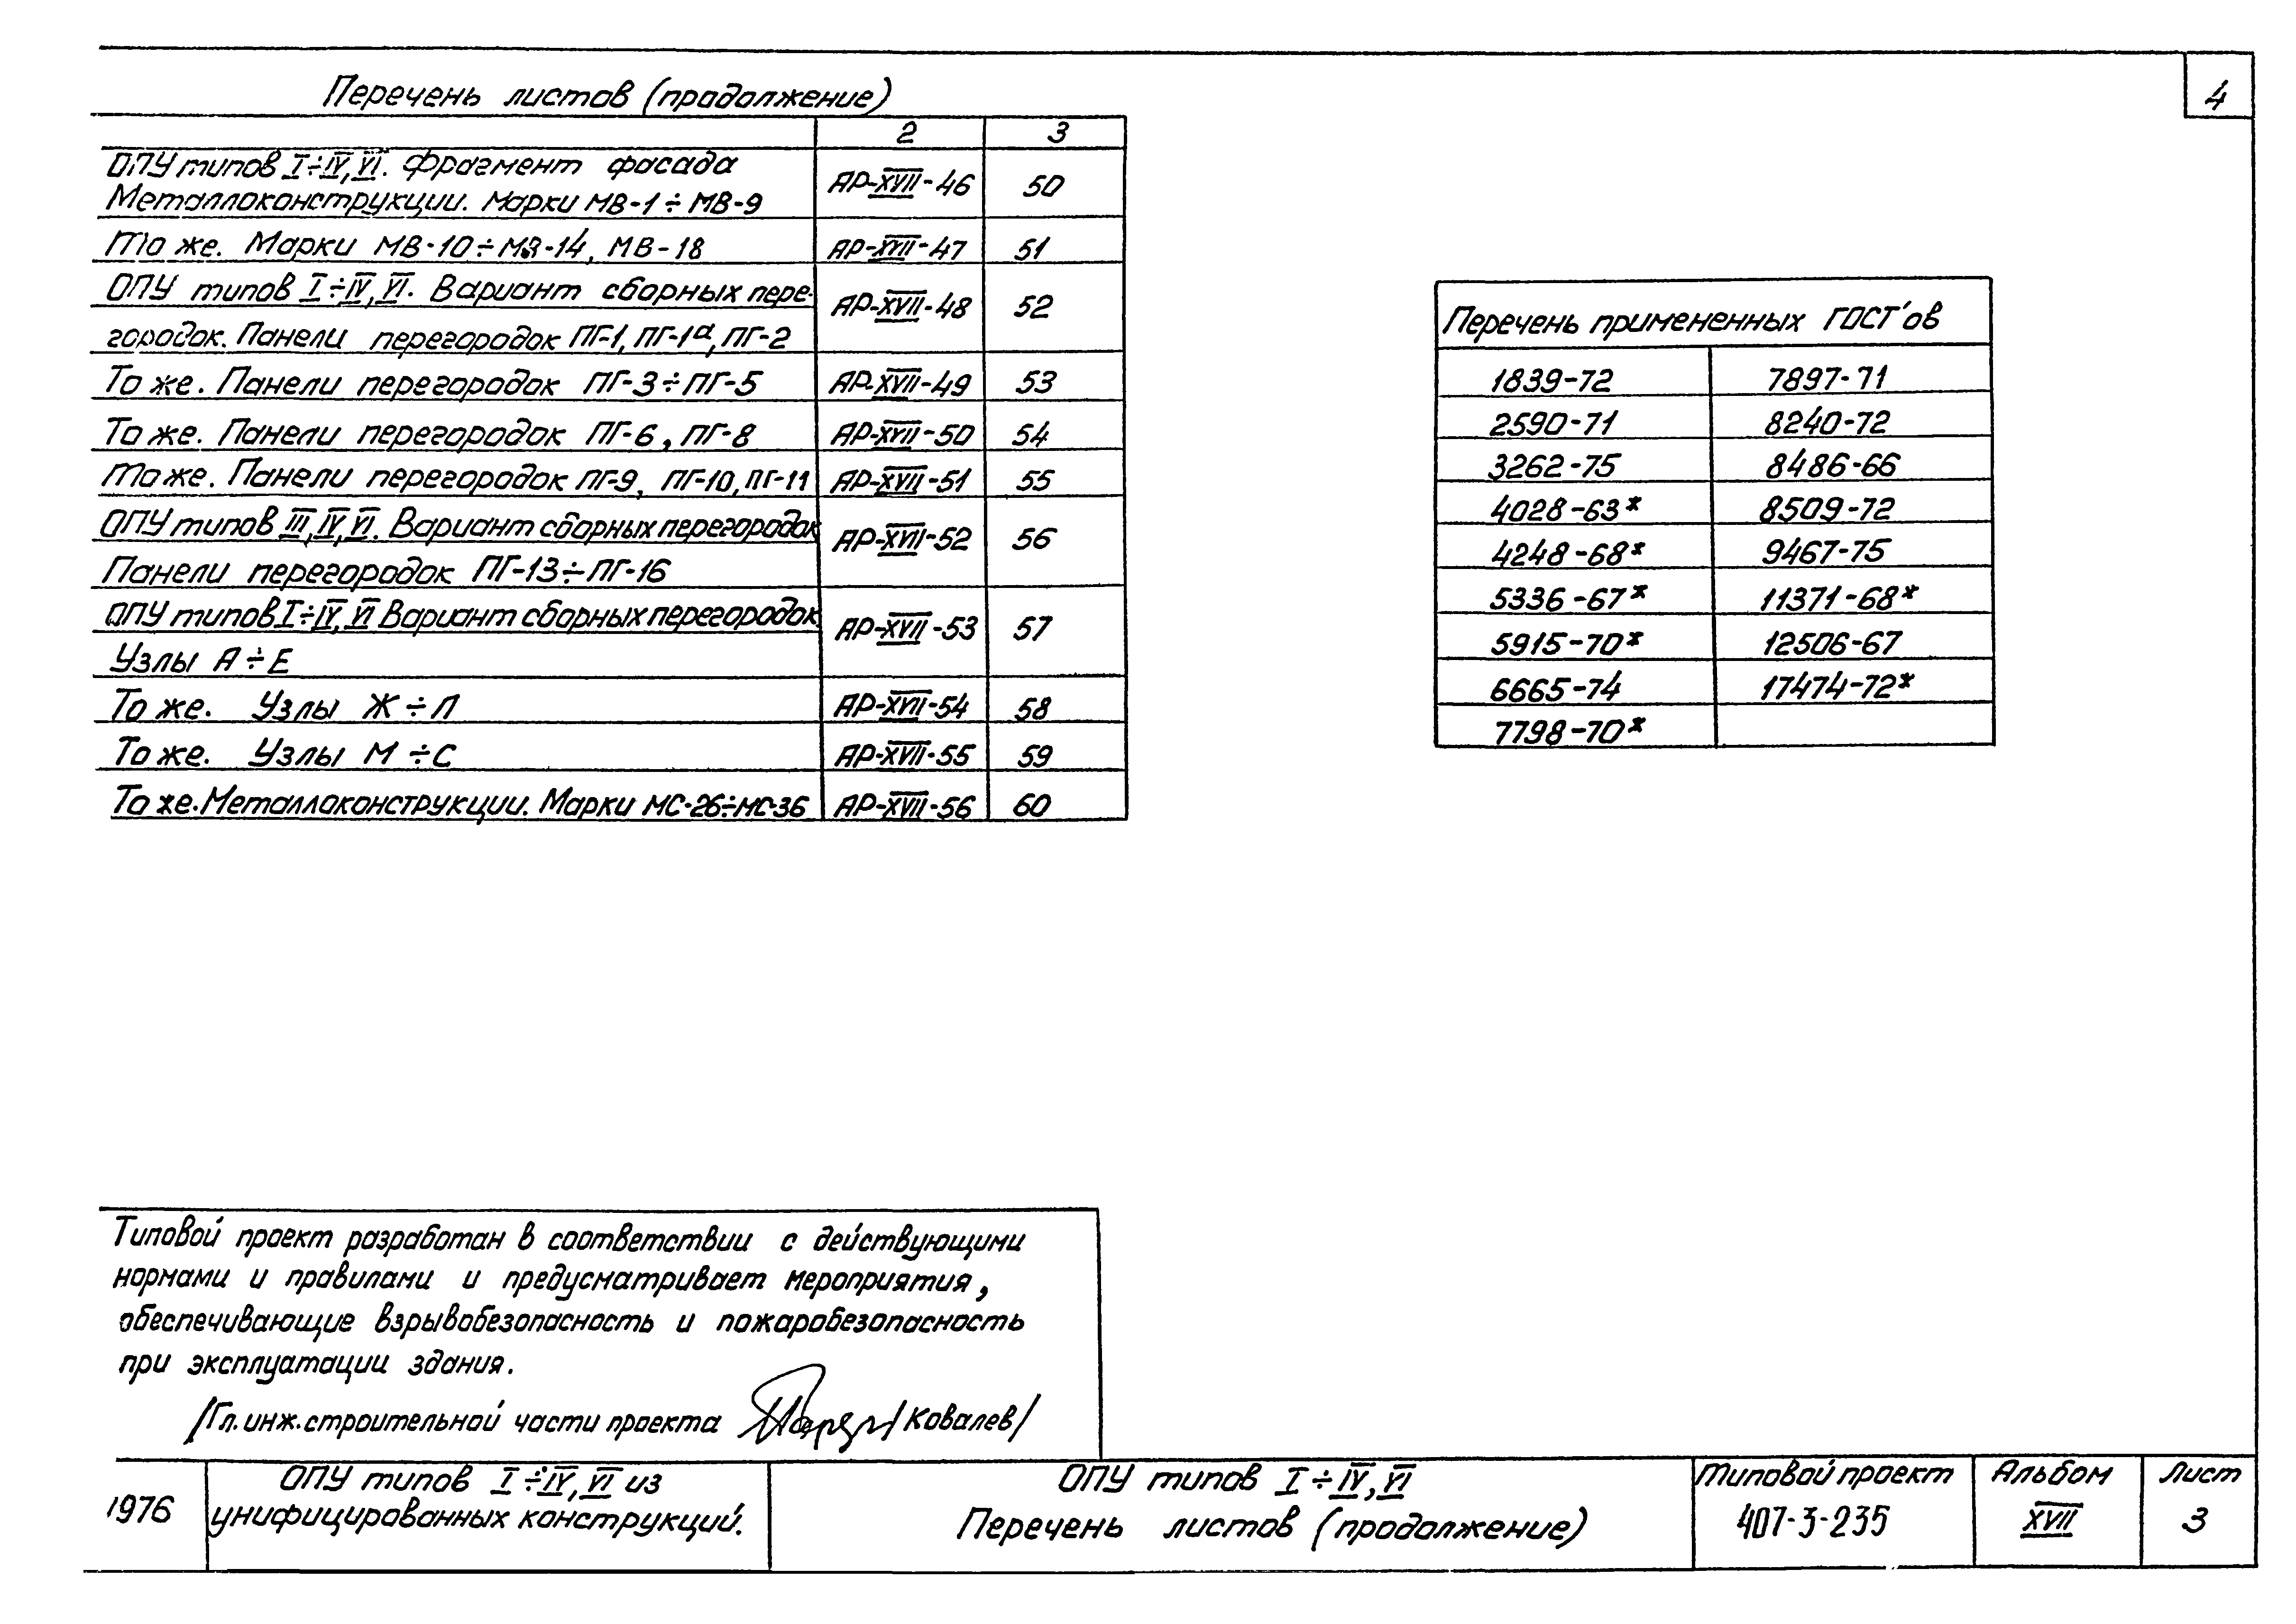 4
Перечень листов (продолжение)
2 3
ОПУ типов I÷IV, VI. Фрагмент фасада
Металлоконструкции. Марки МВ-1÷МВ-9
АР-XVII-46 50
То же. Марки МВ-10÷МВ-14, МВ-18 АР-XVII-47 51
ОПУ типов I÷IV, VI. Вариант сборных пере-
городок. Панели перегородок ПГ-1, ПГ-1а, ПГ-2
АР-XVII-48 52
То же. Панели перегородок ПГ-3÷ПГ-5 АР-XVII-49 53
То же. Панели перегородок ПГ-6, ПГ-8 АР-XVII-50 54
То же. Панели перегородок ПГ-9, ПГ-10, ПГ-11 АР-XVII-51 55
ОПУ типов III, IV, VI. Вариант сборных перегородок
Панели перегородок ПГ-13÷ПГ-16
АР-XVII-52 56
ОПУ типов I÷IV, VI Вариант сборных перегородок.
Узлы А÷Е
АР-XVII-53 57
То же. Узлы Ж÷Л АР-XVII-54 58
То же. Узлы М÷С АР-XVII-55 59
То же. Металлоконструкции. Марки МС-26÷МС-36 АР-XVII-56 60
Перечень примененных ГОСТ'ов
1839-72 7897-71
2590-71 8240-72
3262-75 8486-66
4028-63* 8509-72
4248-68* 9467-75
5336-67* 11371-68*
5915-70* 12506-67
6665-74 17474-72*
7798-70*
Типовой проект разработан в соответствии с действующими
нормами и правилами и предусматривает мероприятия,
обеспечивающие взрывобезопасность и пожаробезопасность
при эксплуатации здания.
/Гл. инж. строительной части проекта /Ковалев/
1976
ОПУ типов I÷IV, VI из
унифицированных конструкций.
ОПУ типов I÷IV, VI
Перечень листов (продолжение)
Типовой проект
407-3-235
Альбом
XVII
Лист
3